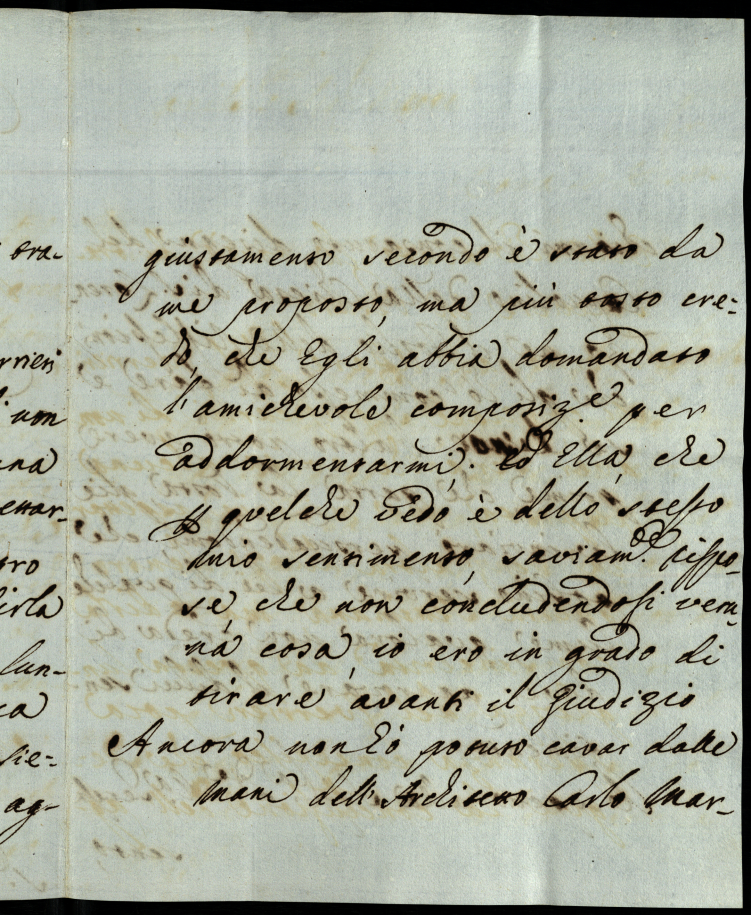 ora-
rrieri
non
ena
ettar-
tro
irla
lun-
ca
sie-
ag-
giustamento secondo è stato da
me proposto, ma più tosto cre-
do, che Egli abbia domandato
l'amichevole composiz.e per
addormentarmi. Ed Ella, che
p quelche vedo è dello stesso
mio sentimento, saviam.te rispo-
se che non concludendosi veru-
na cosa, io ero in grado di
tirare avanti il Giudizio
Ancora non hò potuto cavar dalle
mani dell'Architetto Carlo Mar-